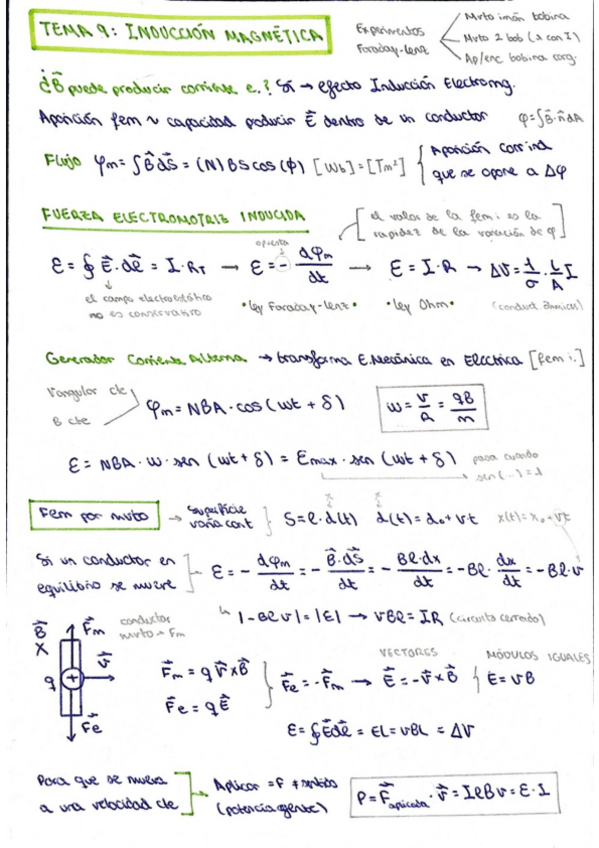 TEMA 9: INDUCCIÓN MAGNÉTICA
Experimentos Faraday-Lenz
Mvto imán bobina
Mvto 2 bob (1 con I)
Ap/enc bobina corg.
¿B⃗ puede producir corriente e.? Sí → efecto Inducción Electromg.
Aparición fem ~ capacidad producir E⃗ dentro de un conductor φ=∫B⃗·n⃗dA
Flujo φm = ∫B⃗dS⃗ = (N)BScos(φ) [Wb]=[Tm²] { Aparición corr ind
que se opone a Δφ
FUERZA ELECTROMOTRIZ INDUCIDA
[el valor de la fem i es la
rapidez de la variación de φ]
opuesta
ε = ∮E⃗·dl⃗ = I·R_T → ε = - dφm/dt → ε = I·R → ΔV = 1/σ · L/A I
el campo electrostático
no es conservativo
•ley Faraday-Lenz•
•ley Ohm•
(conduct. óhmicos)
Generador Corriente Alterna → transforma E.Mecánica en Eléctrica [fem i.]
V angular cte
B cte
φm = NBA·cos(wt + δ)
w = v/R = qB/m
ε = NBA·w·sen(wt+δ) = εmax·sen(wt+δ)
pasa cuando
sen(...)=1
Fem por mvto → Superficie
varía cont } S=l·d(t) d(t)=d₀+vt x(t)=x₀+vt
x x
Si un conductor en
equilibrio se mueve } ε = - dφm/dt = - B⃗·dS⃗/dt = - Bl·dx/dt = -Bl·dx/dt = -Bl·v
↳ |-Blv| = |ε| → vBl = IR (circuito cerrado)
B⃗ X
F⃗m
conductor
mvto → Fm
v⃗
q +
F⃗e
VECTORES
MÓDULOS IGUALES
F⃗m = q v⃗xB⃗
F⃗e = qE⃗ } F⃗e = -F⃗m → E⃗ = -v⃗xB⃗ { E = vB
ε = ∮E⃗dl⃗ = EL = vBL = ΔV
Para que se mueva
a una velocidad cte → Aplicar = F ≠ sentido
(potencia agente)
P = F⃗aplicada·v⃗ = IlBv = ε·I